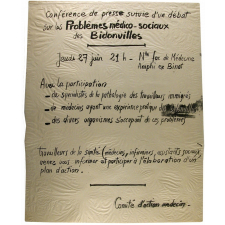 Conférence de presse suivie d'un débat
sur les Problèmes médico-sociaux
des Bidonvilles
Jeudi 27 juin 21h - Nlle fac de Médecine
Amphi Binet
Avec la participation
- de spécialistes de la pathologie des travailleurs immigrés
- de médecins ayant une expérience pratique
- des divers organismes s'occupant de ces problèmes
Travailleurs de la santé (médecins, infirmiers, assistants sociaux),
venez vous informer et participer à l'élaboration d'un
plan d'action.
Comité d'action médecin